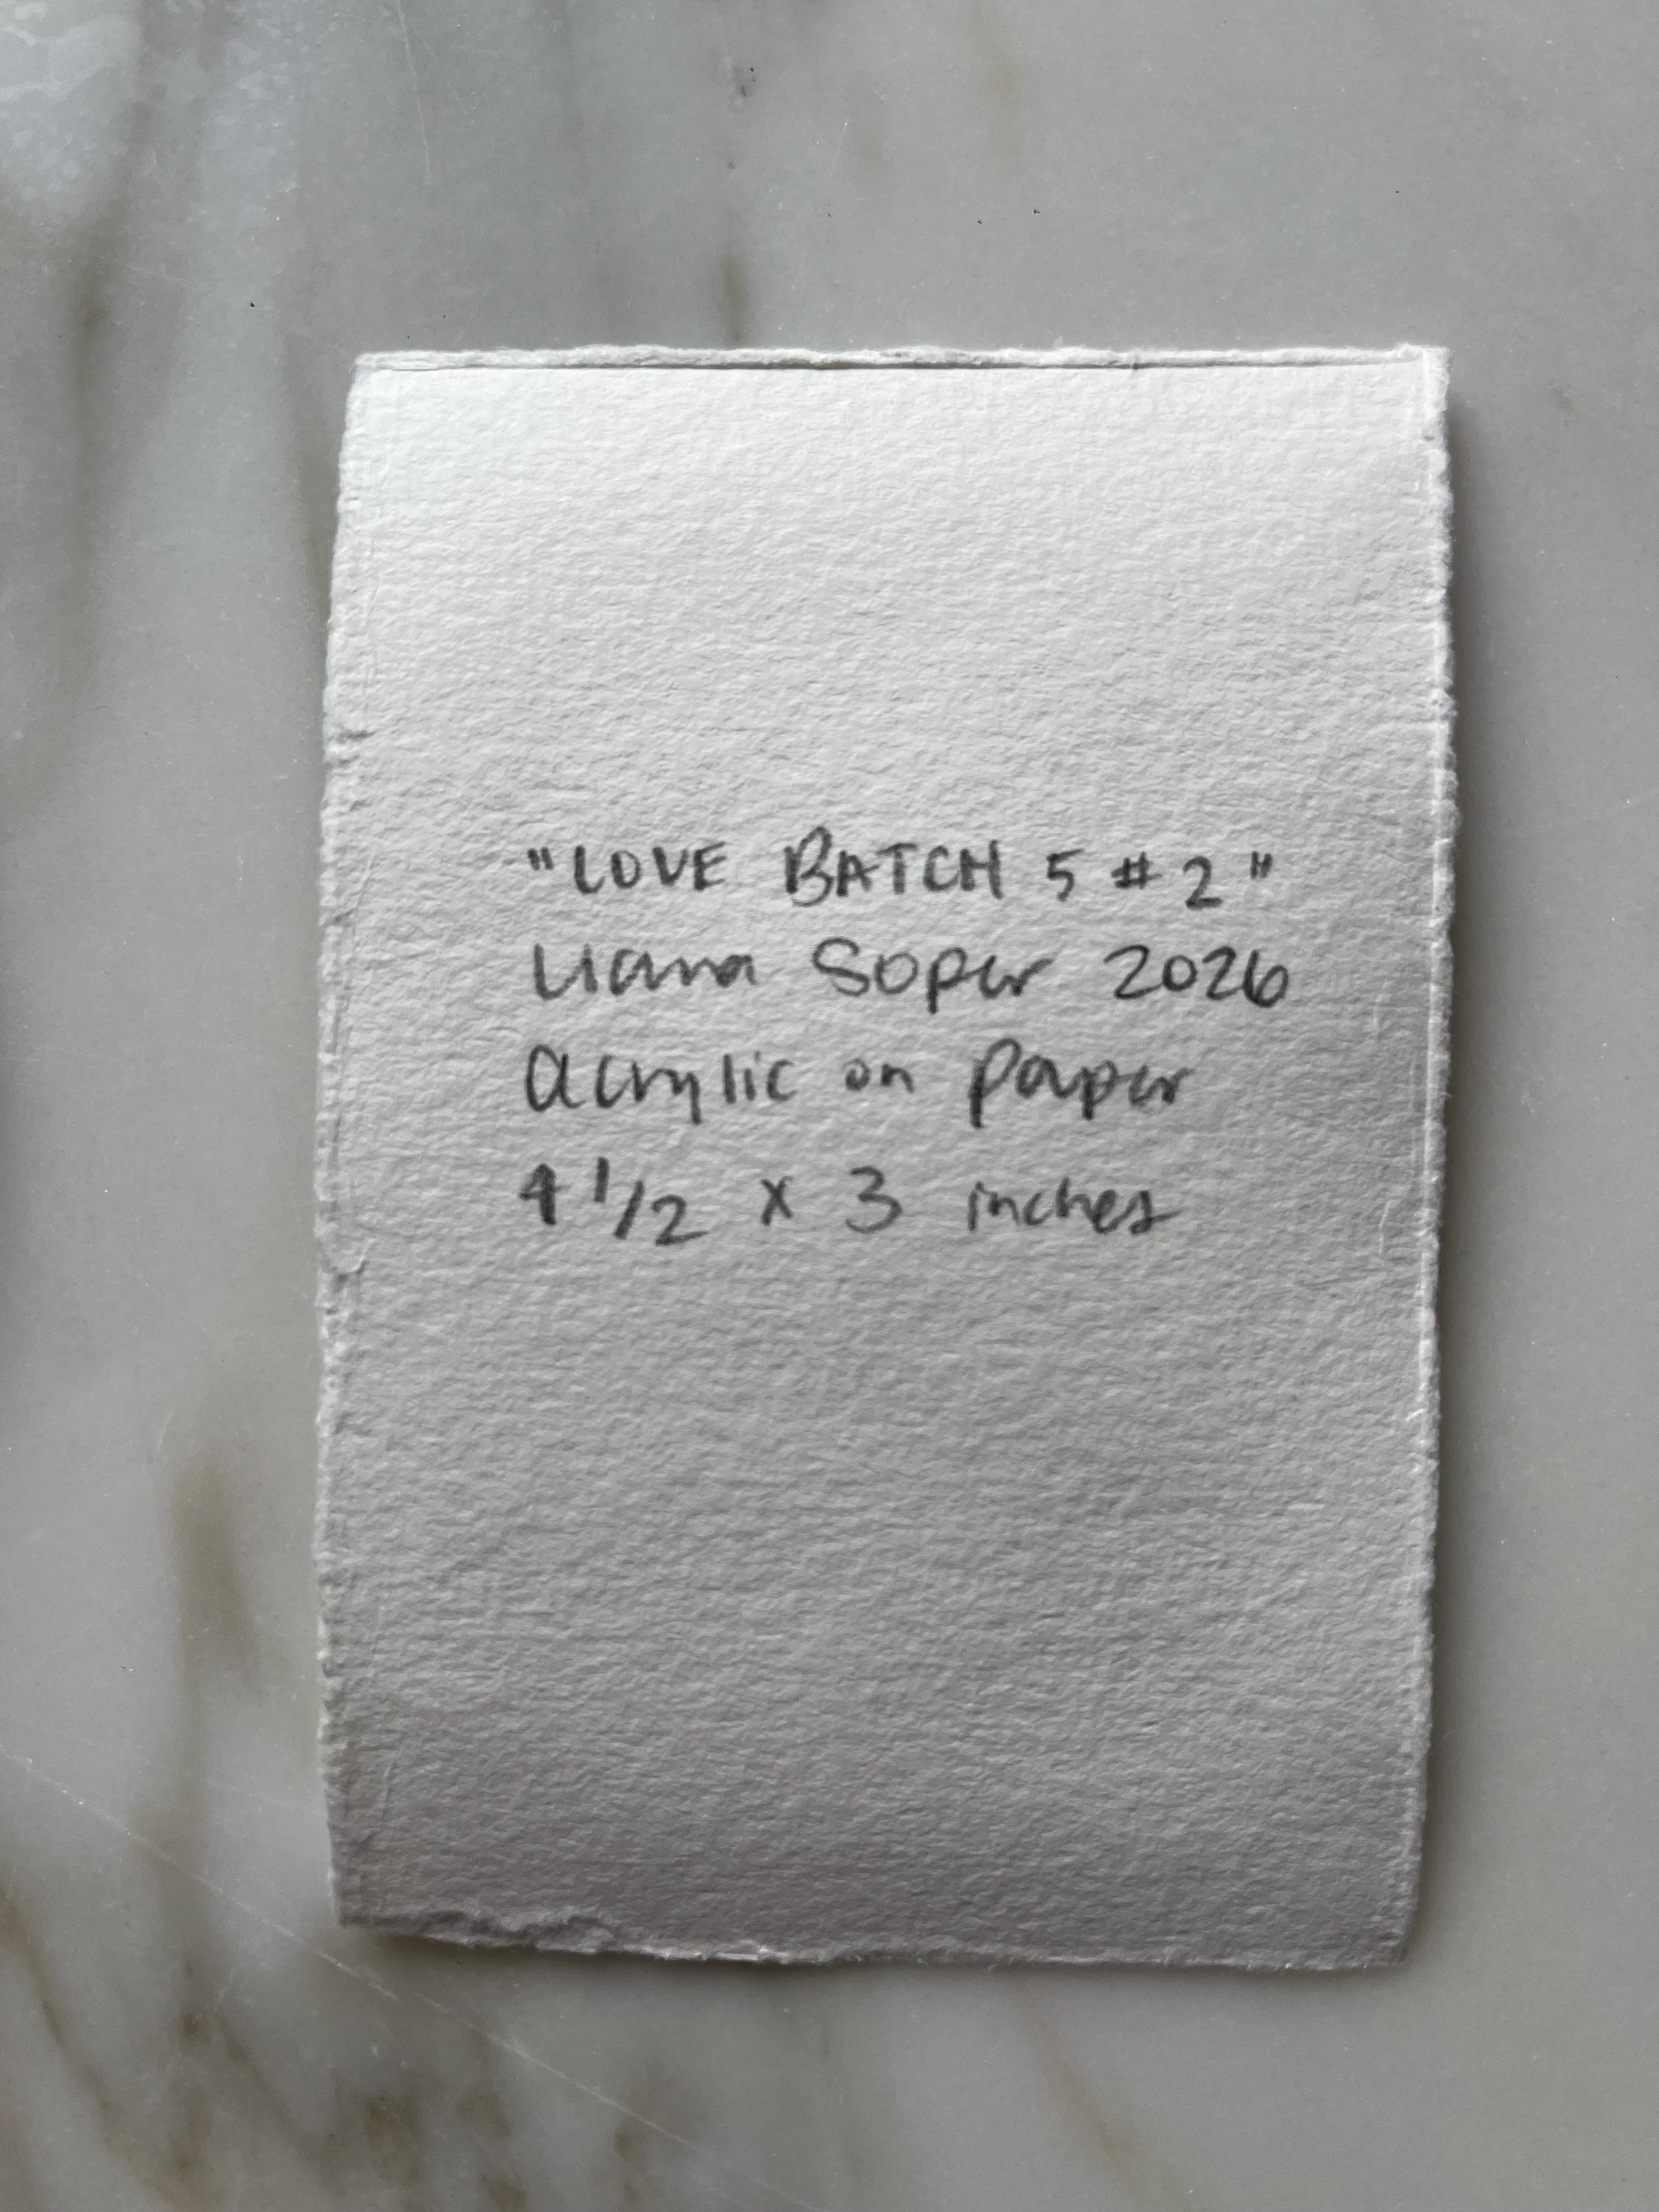 "LOVE BATCH 5 #2"
Liana Soper 2026
acrylic on paper
4 1/2 x 3 inches